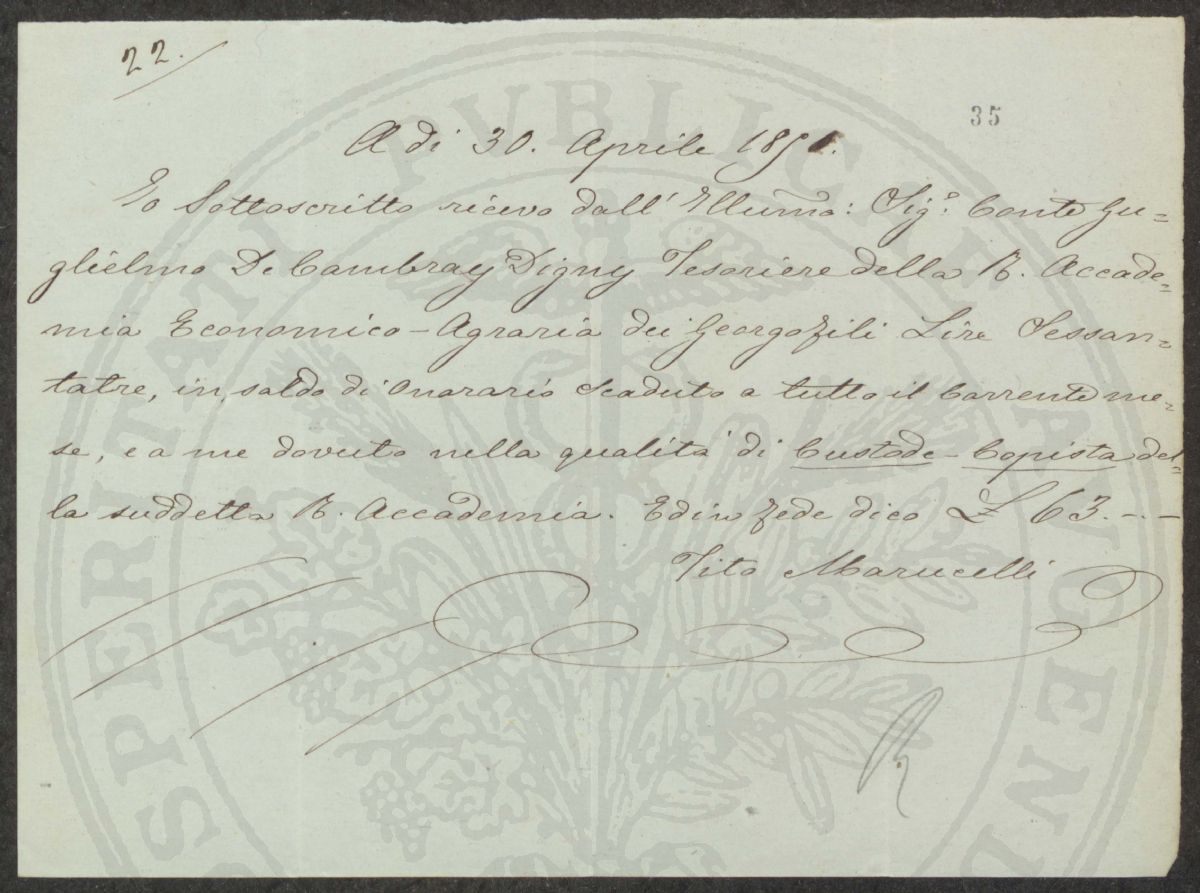 22.
35
A dì 30. Aprile 1851.
Io Sottoscritto ricevo dall' Illumo: Sigr. Conte Gu=
glielmo De Cambray Digny Tesoriere della R. Accade=
mia Economico-Agraria dei Georgofili Lire Sessan=
tatre, in saldo di Onorario scaduto a tutto il corrente me=
se, e a me dovuto nella qualità di Custode-Copista del=
la suddetta R. Accademia. Ed in fede dico £ 63.--
Tito Marucelli
R
PROSPERITATI PVBLICAE AVGENDAE